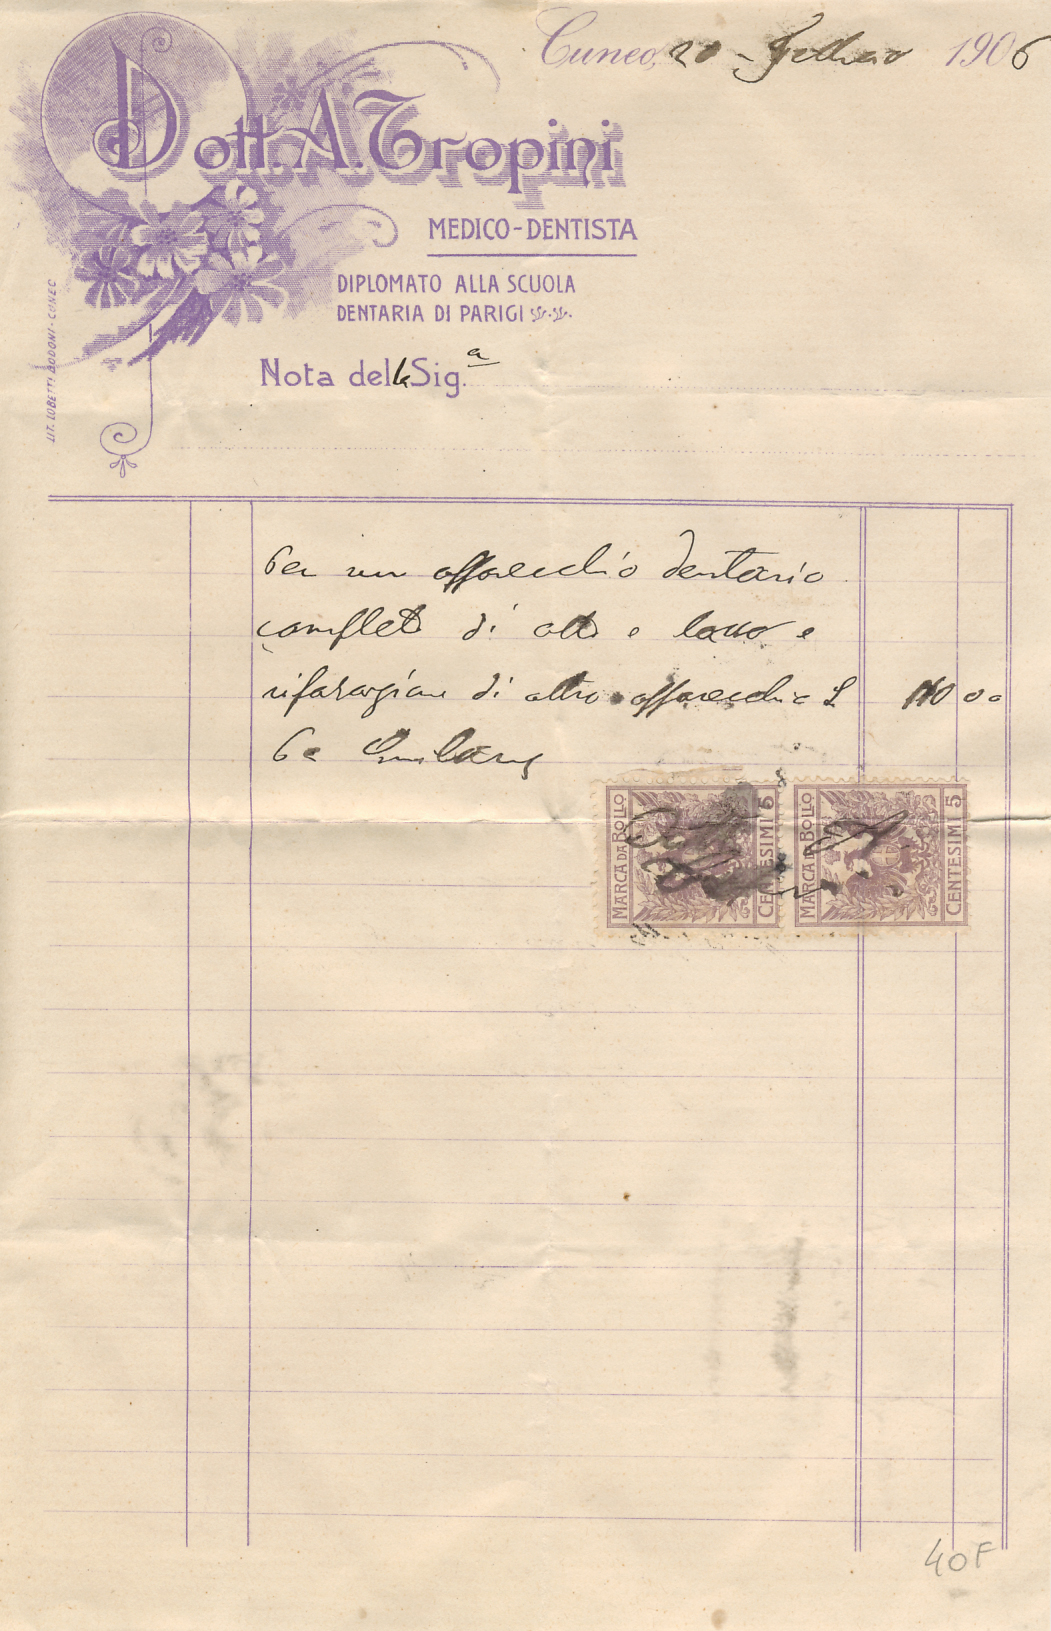 Cuneo, 20 - Febbraio 1906
Dott. A. Tropini
MEDICO-DENTISTA
DIPLOMATO ALLA SCUOLA
DENTARIA DI PARIGI
Nota della Sig.a
LIT. LOBETTI BODONI-CUNEO
Per un apparecchio dentario
completo di otto e
riparazione di altro apparecchio L 110 00
Per
MARCA DA BOLLO CENTESIMI 5
MARCA DA BOLLO CENTESIMI 5
40F